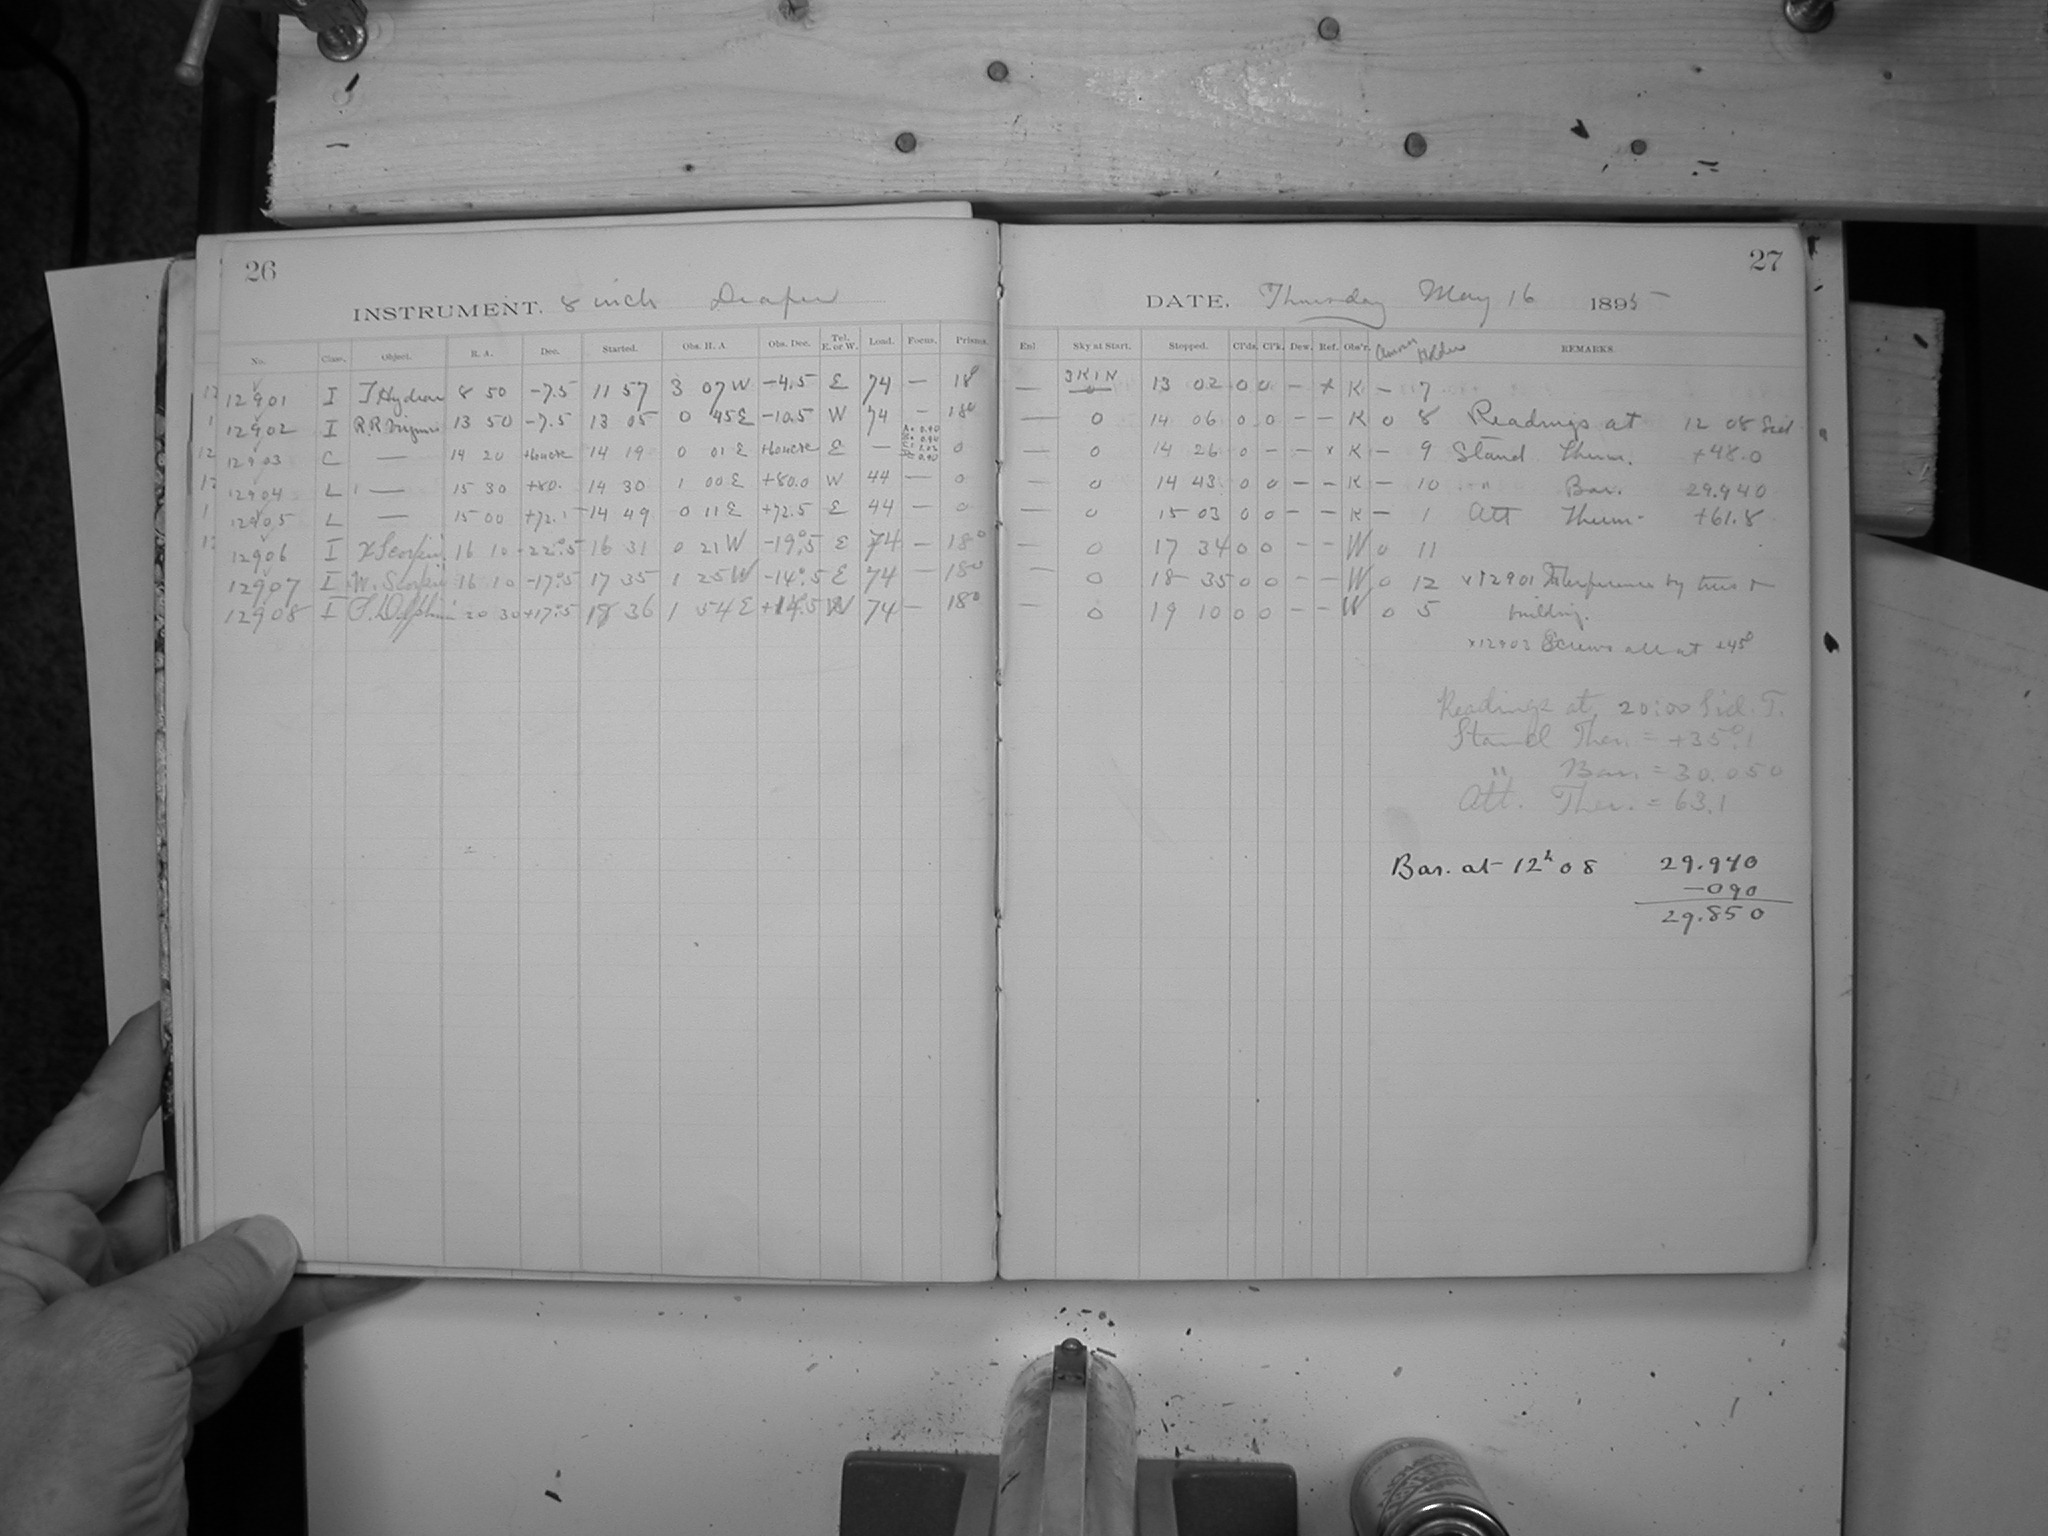 26
INSTRUMENT. 8 inch Draper
No. Class. Object. R. A. Dec. Started. Obs. H. A. Obs. Dec. Tel. E. or W. Load. Focus. Prisms.
12901 I T Hydrae 8 50 -7.5 11 57 3 07 W -4.5 E 74 — 18°
12902 I R.R Virginis 13 50 -7.5 13 05 0 45 E -10.5 W 74 - 18°
12903 C — 14 20 14 19 0 01 E E — 0
12904 L — 15 30 +80. 14 30 1 00 E +80.0 W 44 — 0
12905 L — 15 00 +72.1 14 49 0 11 E +72.5 E 44 — 0
12906 I X Scorpii 16 10 -22°.5 16 31 0 21 W -19°.5 E 74 — 18°
12907 I W. Scorpii 16 10 -17°.5 17 35 1 25 W -14°.5 E 74 — 18°
12908 I S. Delphini 20 30 +17°.5 18 36 1 54 E +14.5 W 74 — 18°
27
DATE. Thursday May 16 1895
Enl Sky at Start. Stopped. Cl'ds. Cl'k. Dew. Ref. Obs'r. Holder REMARKS.
— 3K1N 0 13 02 0 0 - x K - 7
— 0 14 06 0 0 - - K 0 8 Readings at 12 08 Sid
— 0 14 26 0 - - x K - 9 Stand Therm. +48.0
— 0 14 43 0 0 - - K - 10 " Bar. 29.940
— 0 15 03 0 0 - - K - 1 Att Therm. +61.8
— 0 17 34 0 0 - - W 0 11
— 0 18 35 0 0 - - W 0 12 x12901 Interference by trees &
— 0 19 10 0 0 - - W 0 5 building.
x12903 Screws all at +45°
Readings at 20:00 Sid. T.
Stand Ther. = +35°.1
" Bar. = 30.050
Att. Ther. = 63.1
Bar. at 12h 08 29.940
-090
29.850